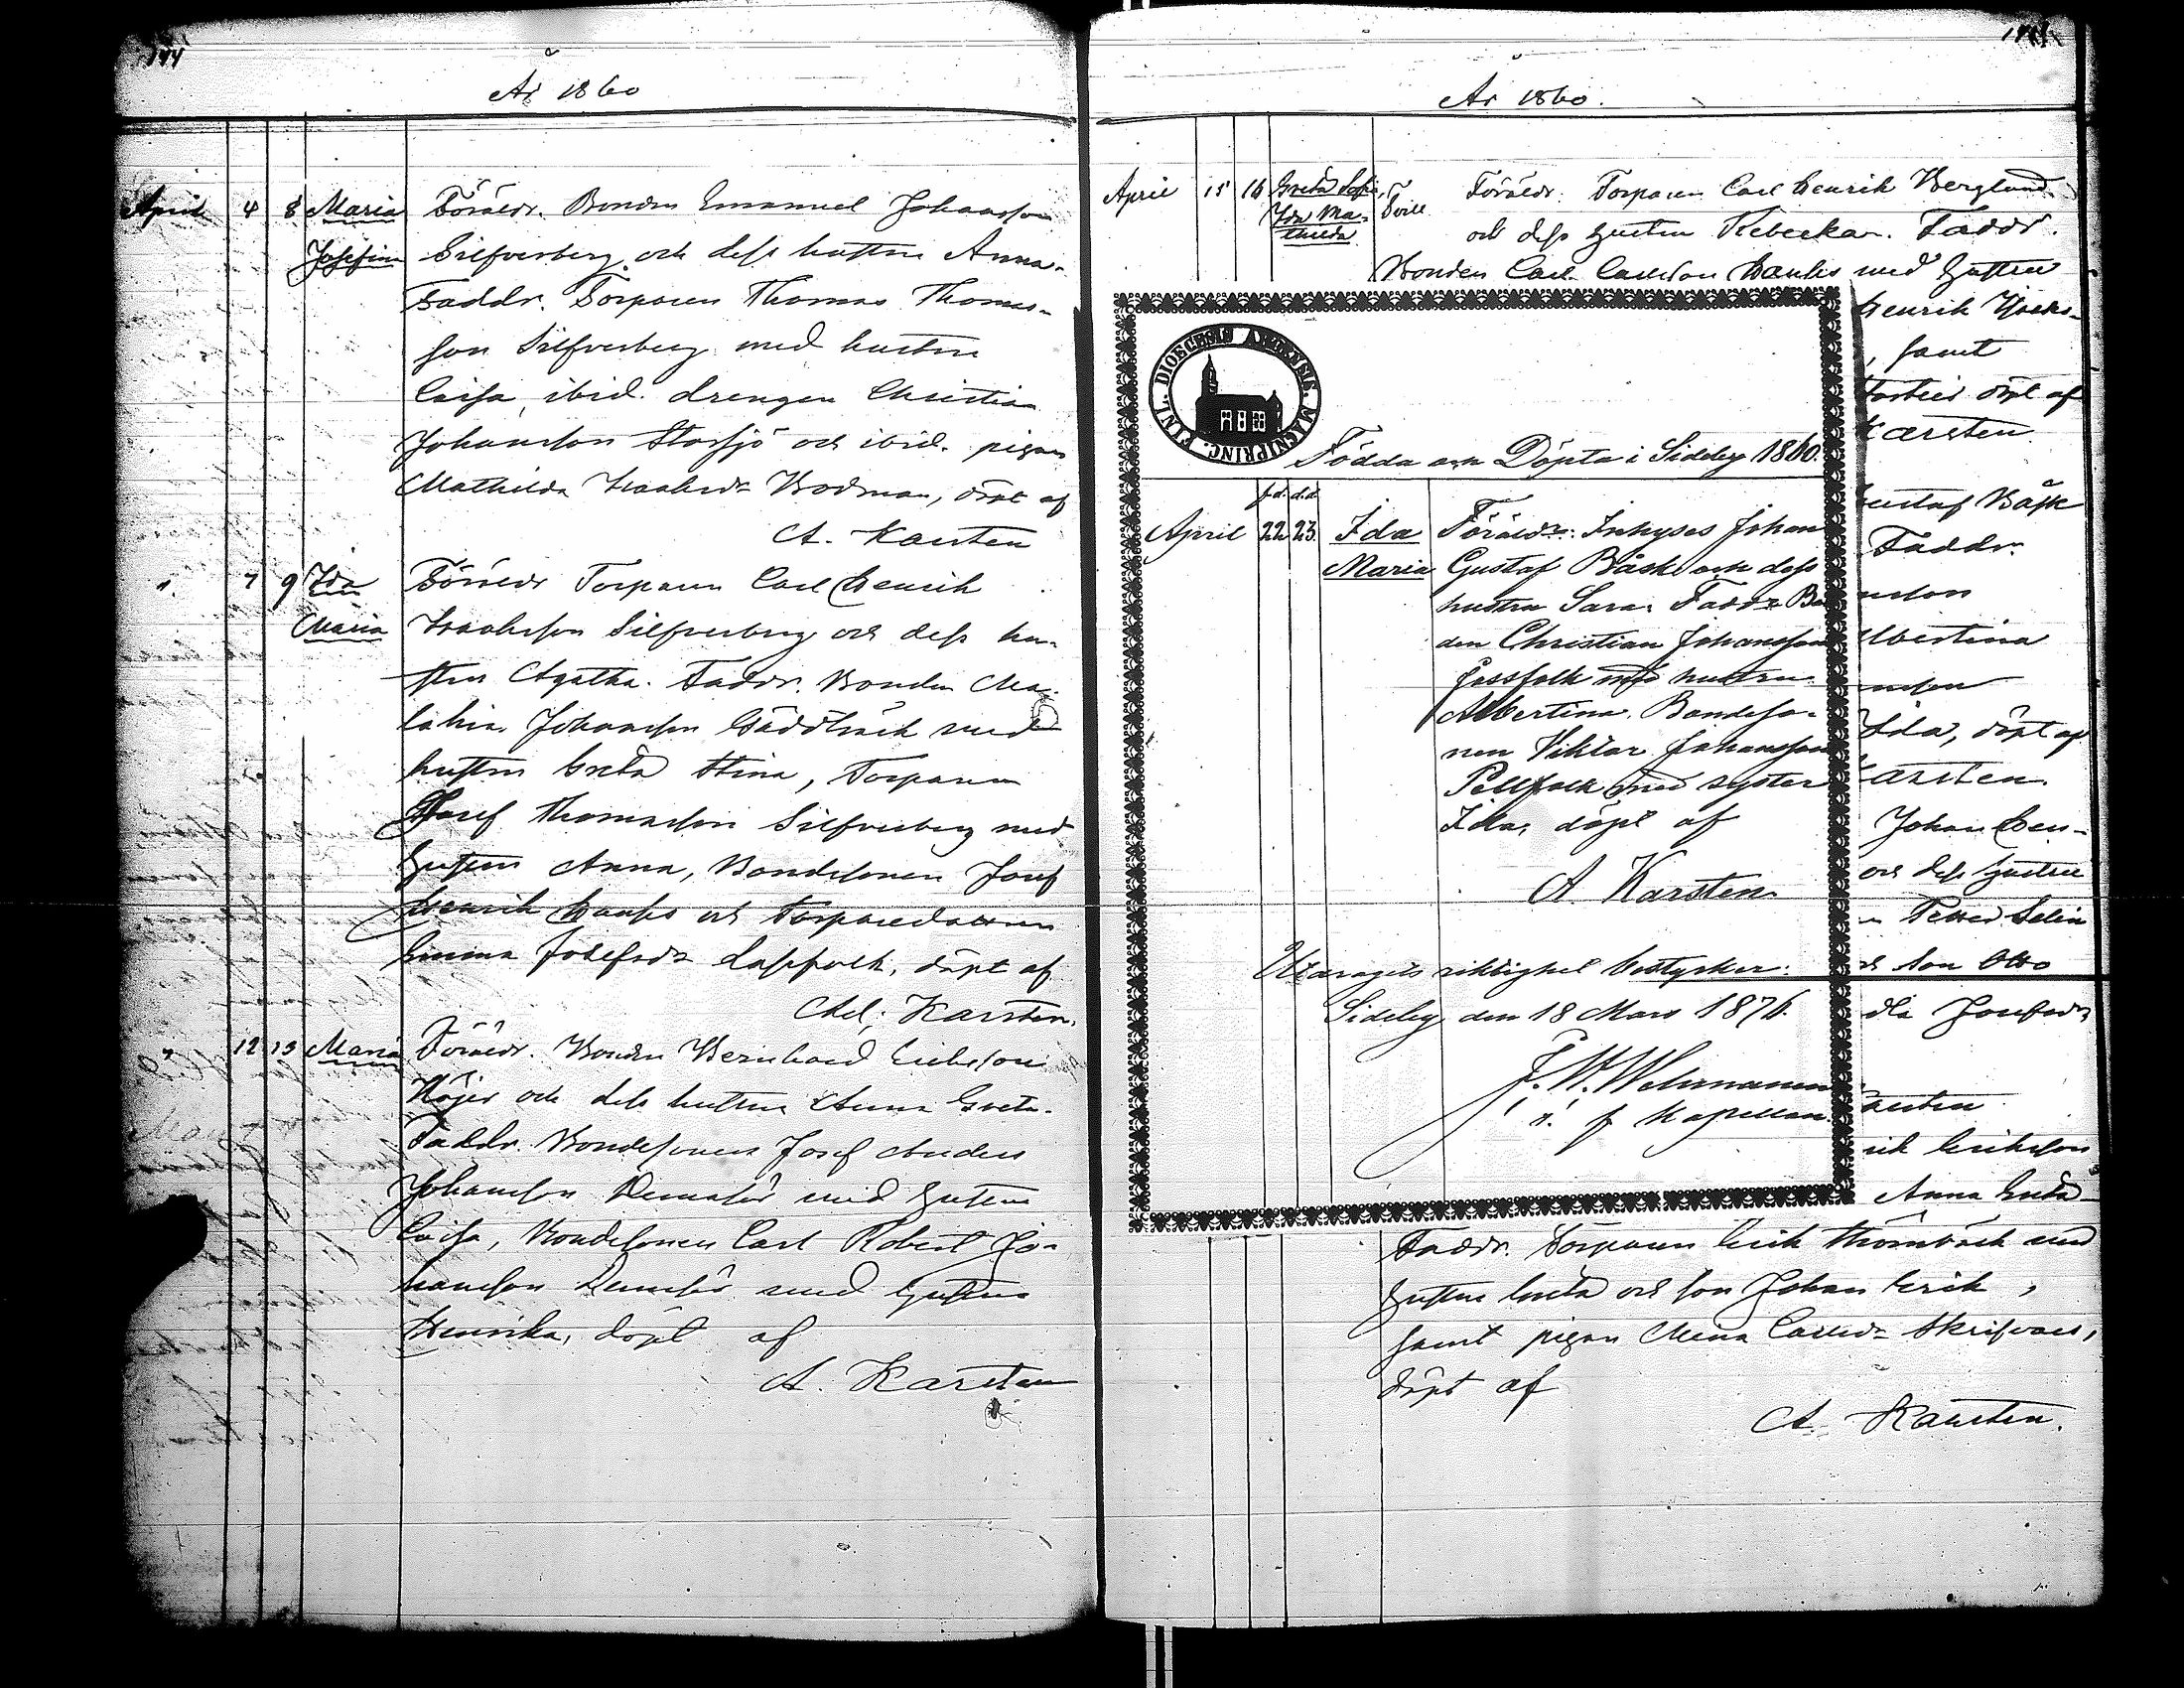 144
År 1860
April 4 8 Maria Föräldr. Bonden Emanuel Johansson
Josefina Silfverberg och dess hustru Anna.
Faddr. Torparen Thomas Thomas-
son Silfverberg med hustru
Caisa, ibid. drengen Christian
Johansson Storsjö och ibid. pigan
Mathilda Isaksdr Bodman, döpt af
A. Karsten
". 7 9 Ida Föräldr Torparen Carl Henrik
Maria Isaksson Silfverberg och dess hu-
stru Agatha. Faddr. Bonden
Johansson med
hustru Greta Stina, Torparen
Josef Thomasson Silfverberg med
hustru Anna, Bondesonen Josef
Henrik och Torparedottren
Emma Josefsdr Lappfolk, döpt af
Ad. Karsten.
" 12 13 Maria Föräldr. Bonden Bernhard Eriksson
Höjer och dess hustru Anna Greta.
Faddr. Bondesonen Josef Anders
Johansson med hustru
Caisa, Bondesonen Carl Robert Jo-
hansson med hustru
Henrika, döpt af
A. Karsten
År 1860.
April 15 16 Greta Sofia, Föräldr. Torparen Carl Henrik Berglund
Ida Ma- Tvill.
thilda och dess hustru Rebecka. Faddr.
Bonden Carl Carlsson med hustru
Henrik
, samt
döpt af
Karsten
DIOECESIS ABOENSIS. MAGNIPRINC. FINL.
Födda och Döpta i Sideby 1860.
f.d. d.d
April 22 23. Ida Föräldr: Inhyses Johan
Maria Gustaf Båsk och dess
hustru Sara. Faddr Bo
den Christian Johansson
Jossfolk med hustru
Albertina. Bondeso-
nen Viktor Johansson
Pellfolk med syster
Ida, döpt af
A. Karsten
Utdragets riktighet bestyrker:
Sideby den 18 Mars 1876.
Kapellan.
Gustaf Båsk
Faddr.
nsson
lbertina
nsson
Ida, döpt af
arsten.
Johan Hen-
och dess hustru
Petter
son Otto
Josefsdr
arsten
rik Eriksson
Anna Greta
Faddr. Torparen Erik Strömbäck med
hustru Greta och son Johan Erik,
samt pigan Mina Carlsdr Skrifvars,
döpt af
A. Karsten.